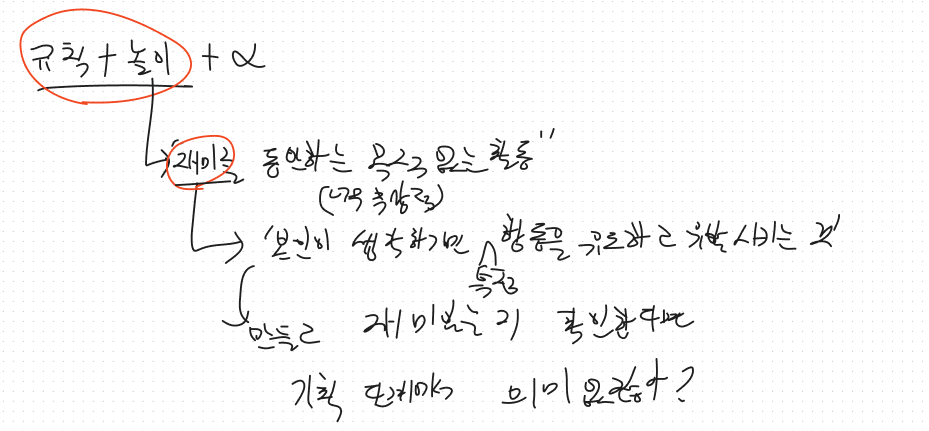 규칙 + 놀이 + α
"재미를 동반하는 목적 없는 활동"
(너무 추상적)
'본인이 생각하기만 행동을 유도하고 유발시키는 것'
특정
만들고 재미있는지 확인한다면
기획 단계에서 의미 있을까?